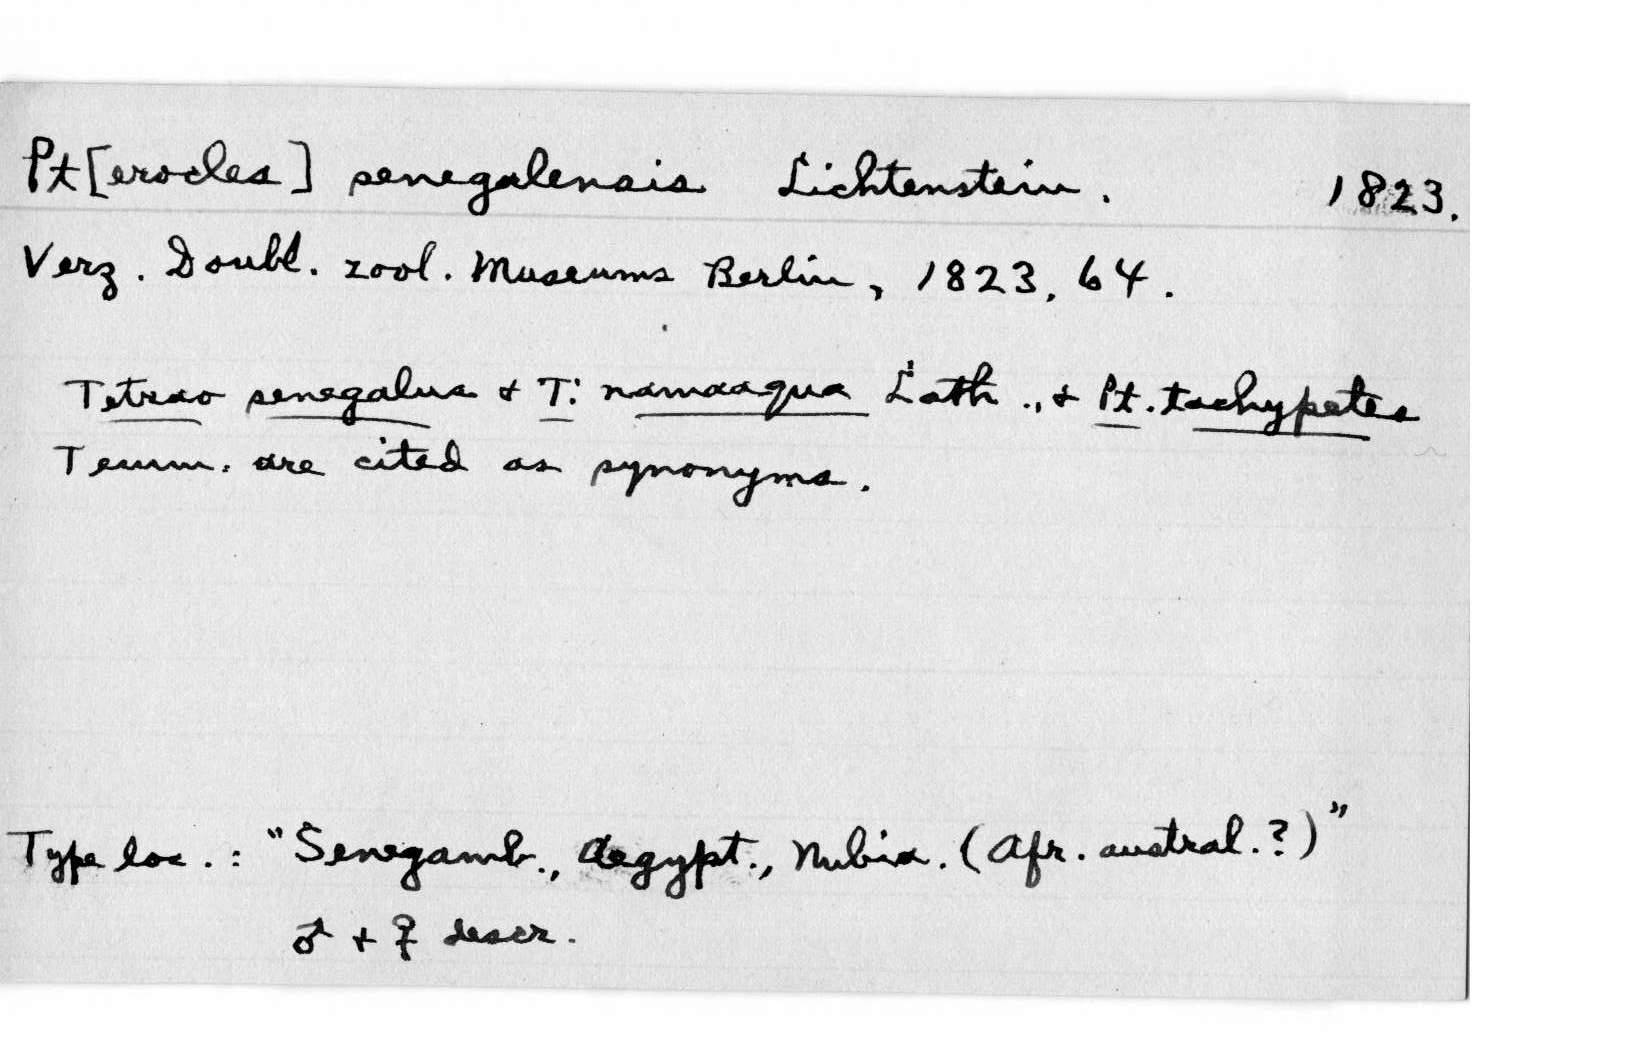 Pt[erocles] senegalensis Lichtenstein. 1823.
Verz. Doubl. zool. Museums Berlin, 1823, 64.
Tetrao senegalus & T. namaaqua Lath., & Pt. tachypetes
Temm. are cited as synonyms.
Type loc.: "Senegamb., Aegypt., Nubia. (Afr. austral.?)"
♂ & ♀ descr.